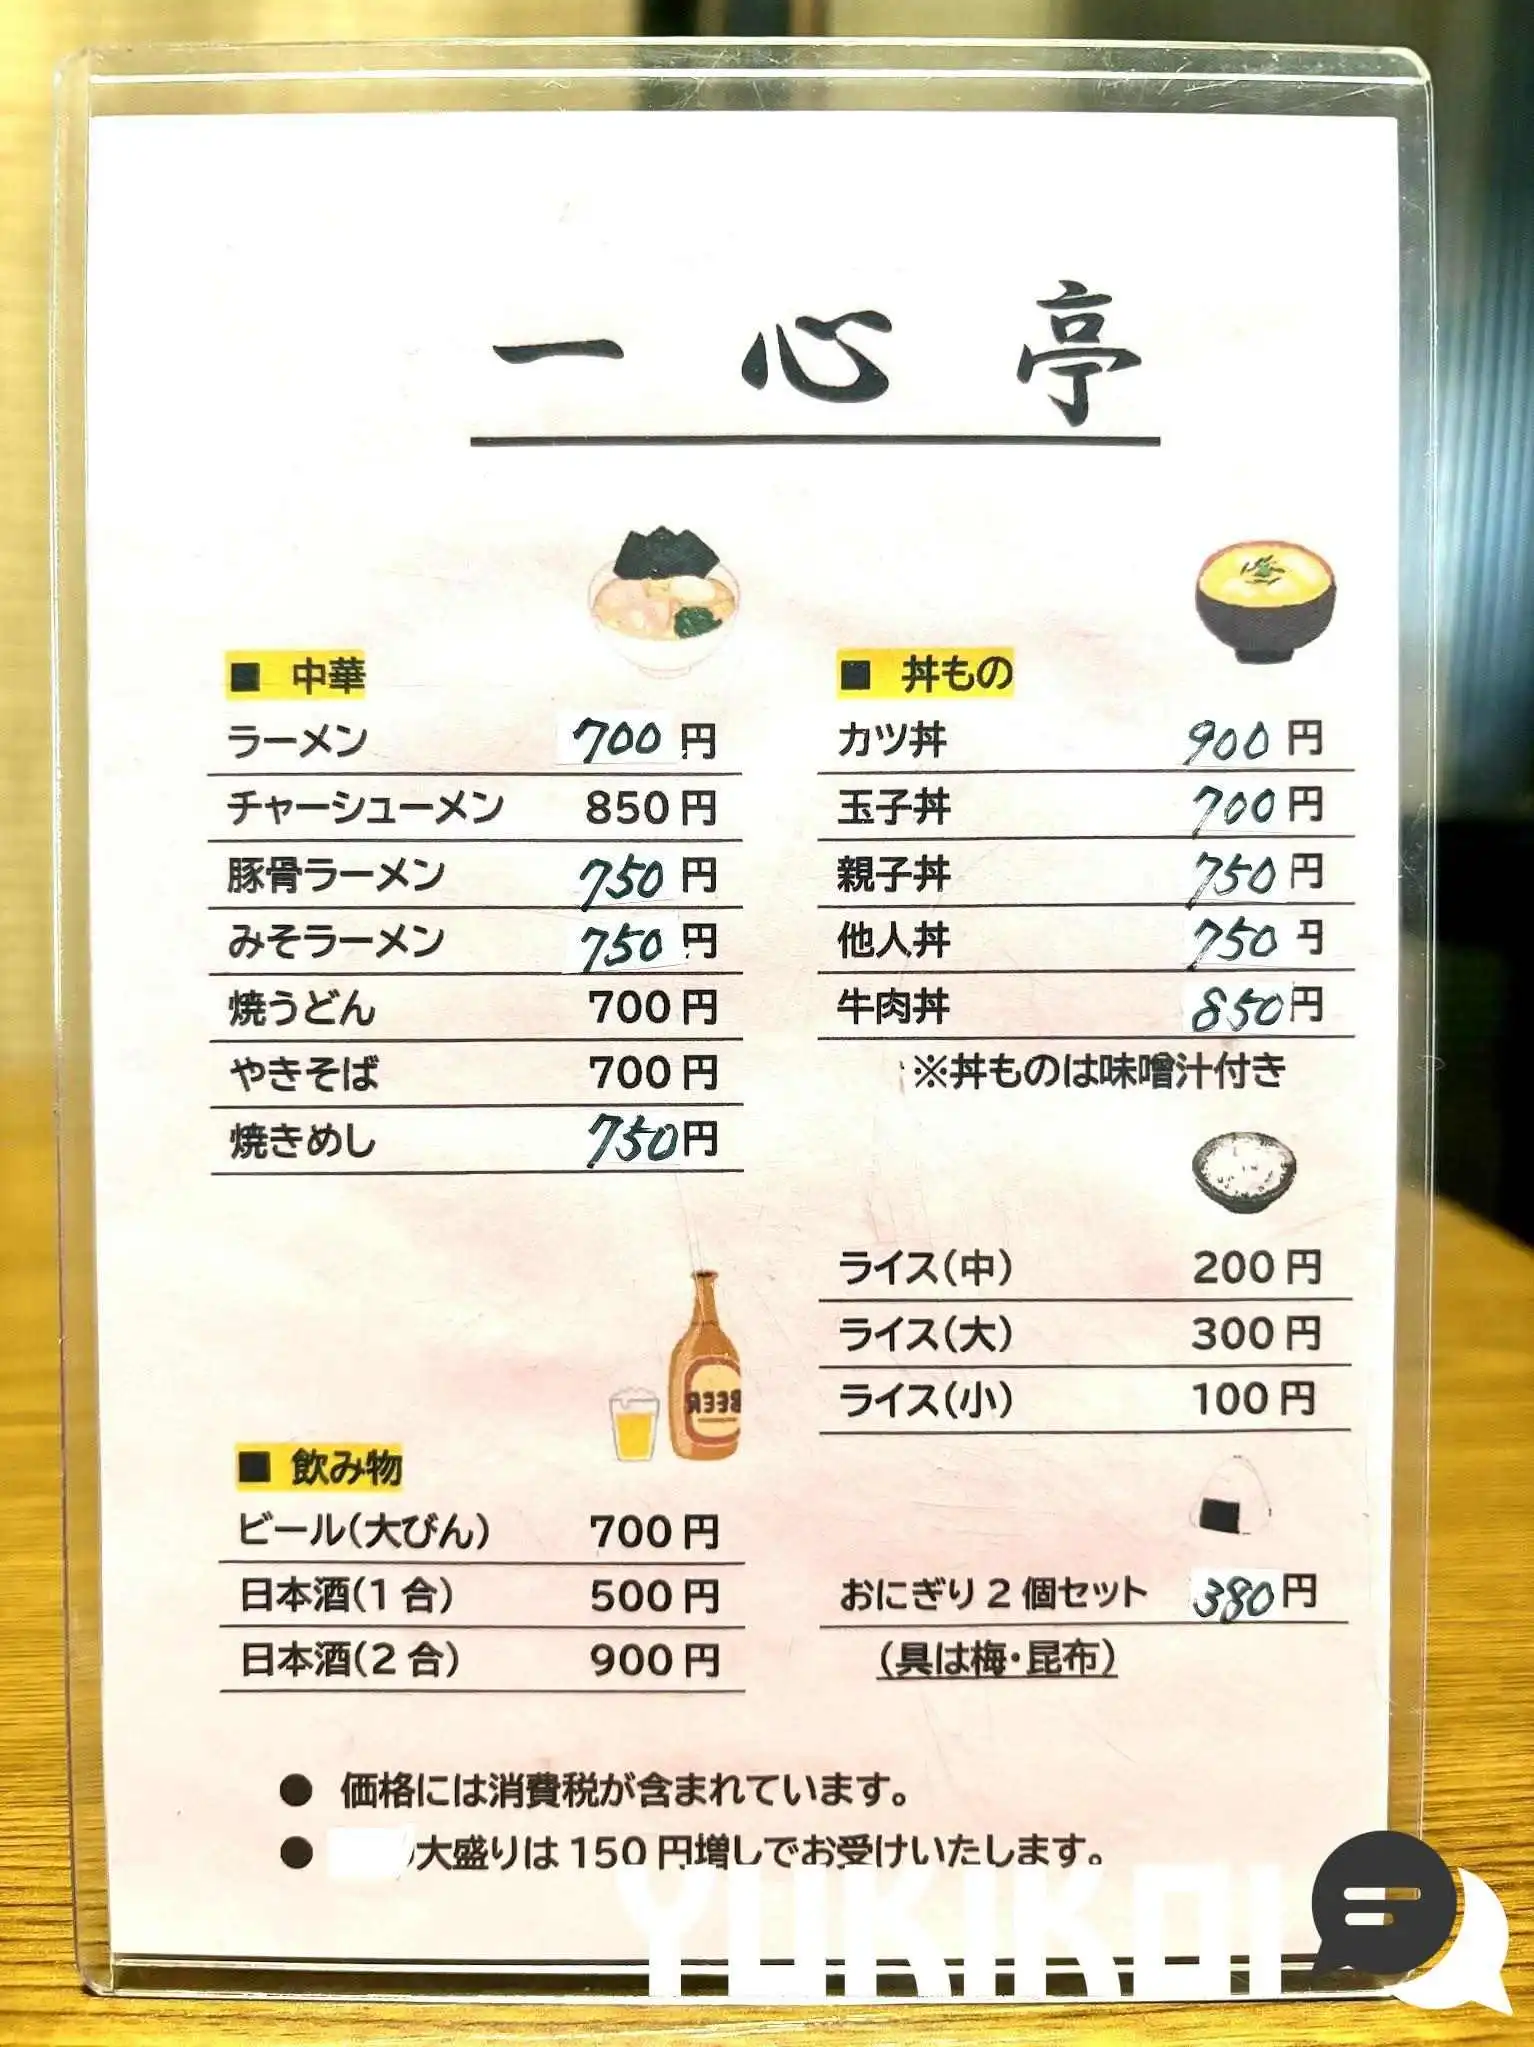 一心亭
■ 中華
ラーメン 700円
チャーシューメン 850円
豚骨ラーメン 750円
みそラーメン 750円
焼うどん 700円
やきそば 700円
焼きめし 750円
■ 丼もの
カツ丼 900円
玉子丼 700円
親子丼 750円
他人丼 750円
牛肉丼 850円
※丼ものは味噌汁付き
ライス(中) 200円
ライス(大) 300円
ライス(小) 100円
BEER
■ 飲み物
ビール(大びん) 700円
日本酒(1合) 500円
日本酒(2合) 900円
おにぎり2個セット 380円
(具は梅・昆布)
● 価格には消費税が含まれています。
● 大盛りは150円増しでお受けいたします。
YUKIKOI